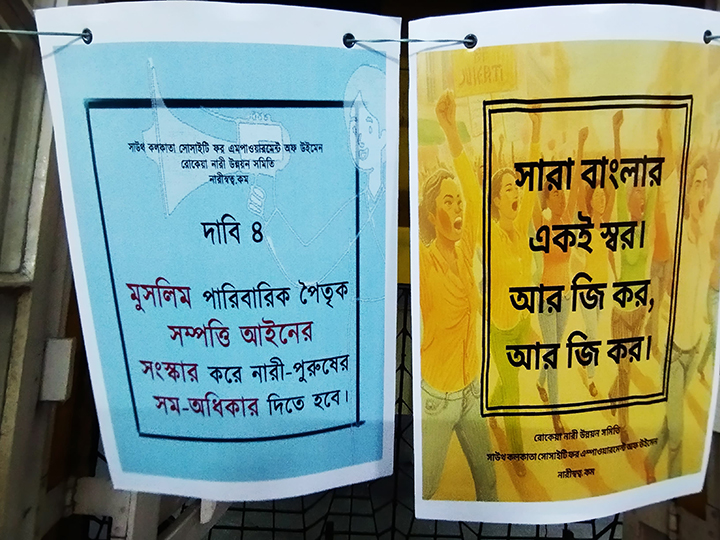 সাউথ কলকাতা সোসাইটি ফর এমপাওয়ারমেন্ট অফ উইমেন
রোকেয়া নারী উন্নয়ন সমিতি
নারীস্বত্ব.কম
দাবি ৪
মুসলিম পারিবারিক পৈতৃক
সম্পত্তি আইনের
সংস্কার করে নারী-পুরুষের
সম-অধিকার দিতে হবে।
সারা বাংলার
একই স্বর।
আর জি কর,
আর জি কর।
রোকেয়া নারী উন্নয়ন সমিতি
সাউথ কলকাতা সোসাইটি ফর এম্পাওয়ারমেন্ট অফ উইমেন
নারীস্বত্ব.কম